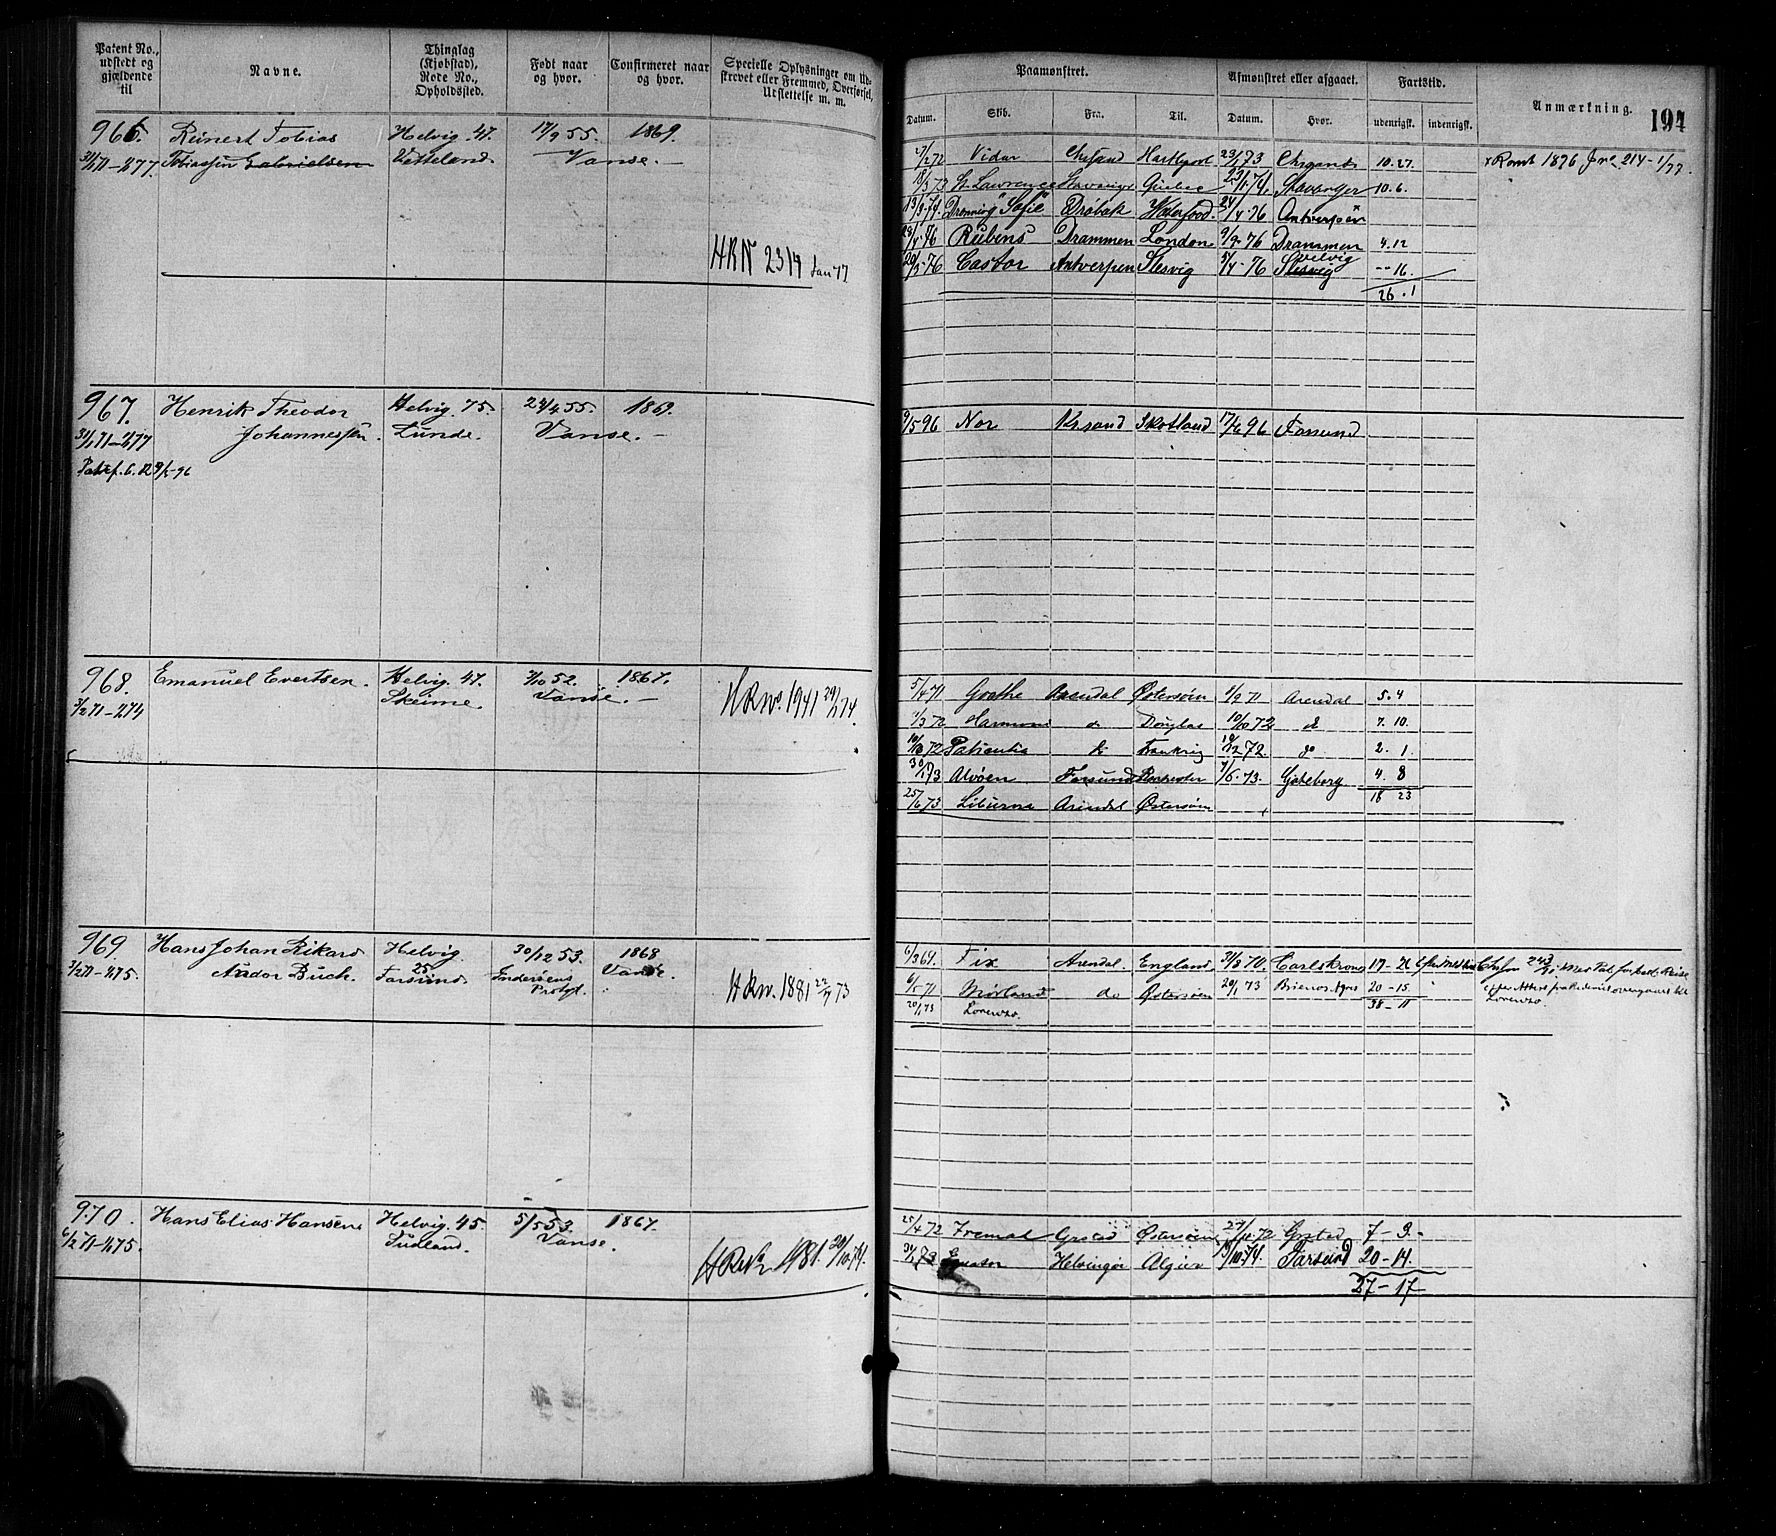 Patent No., udstedt og gjældende til
Navne.
Thinglag (Kjøbstad), Rode No., Opholdssted.
Født naar og hvor.
Confirmeret naar og hvor.
Specielle Oplysninger om Udskrevet eller Fremmed, Overførsel, Udslettelse m. m.
Paamønstret.
Afmønstret eller afgaaet.
Fartstid.
Anmærkning.
194
Datum. Skib. Fra. Til. Datum. Hvor. udenrigsk. indenrigsk.
966. Reinert Tobias Helvig. 47. 17/9 55. 1869.
31/1 71-277 Tobiassen Gabrielsen Vatteland. Vanse.
HRNº 2314 Jan 77
27/2 72 Vidar Chrsand Hartlepool 23/1 73 Chrsands 10.27.
x Romt 1876 Jno. 214-1/77.
18/3 73 St. Lawrence Stavanger Quebec 23/1.74. Stavanger 10.6.
13/3.74. Dronning "Sofie" Drøbak Waterford. 24/4.76 Antverpen
Rubens Drammen London 9/9.76 Drammen 4.12
20/3.76 Castor Antverpen Slesvig 5/4.76 Slesvig Helvig --16.
26.1
967. Henrik Theodor Helvig. 75. 24/4 55. 1869.
31/1 71-277 Johannessen. Lunde. Vanse.
9/5 96 Nor Krsand Skotland 17/6 96 Farsund
968. Emanuel Evertsen. Helvig. 47. 7/10 52. 1867.
3/2 71-274 Skeime. Vanse.
HRNo. 1941 29/1 74.
5/4 71 Goethe Arendal Østersøen 1/9 71 Arendal 5.4
1/3 72 do Douglas 10/10 72 do 7.10.
10/10 72 Patientia do Frankrig 12 72. do 2.1.
30/1 73 Alvøen Farsund Rochester 7/6.73. Gøteborg 4.8
18 23
25/6 73 Liburna Arendal Østersøen
969 Hans Johan Rikard Helvig. 30/12 53. 1868
3/2 71-275. Nador Buch. 25 Farsund. Endresens Protgt. Vanse.
HRN. 1881 22/7 73
6/3 69. Fix Arendal. England, 31/8 70. Carlskrona 17-26
6/5 71 Mørland do Østersøen 20/1 73 Buenos Ayres 20-15.
20/1 73 Lorenzo. 38-11
Lorenzo.
970. Hans Elias Hansen Helvig. 45. 5/5 53. 1867.
6/2 71-275. Sudland. Vanse.
1981. 20/10.74.
25/4 72 Fremad Grstad Østersøen 27/11 72 Grstad 7-3.
Equator Helsingør Algier 13/10.74. Farsund 20-14.
27-17